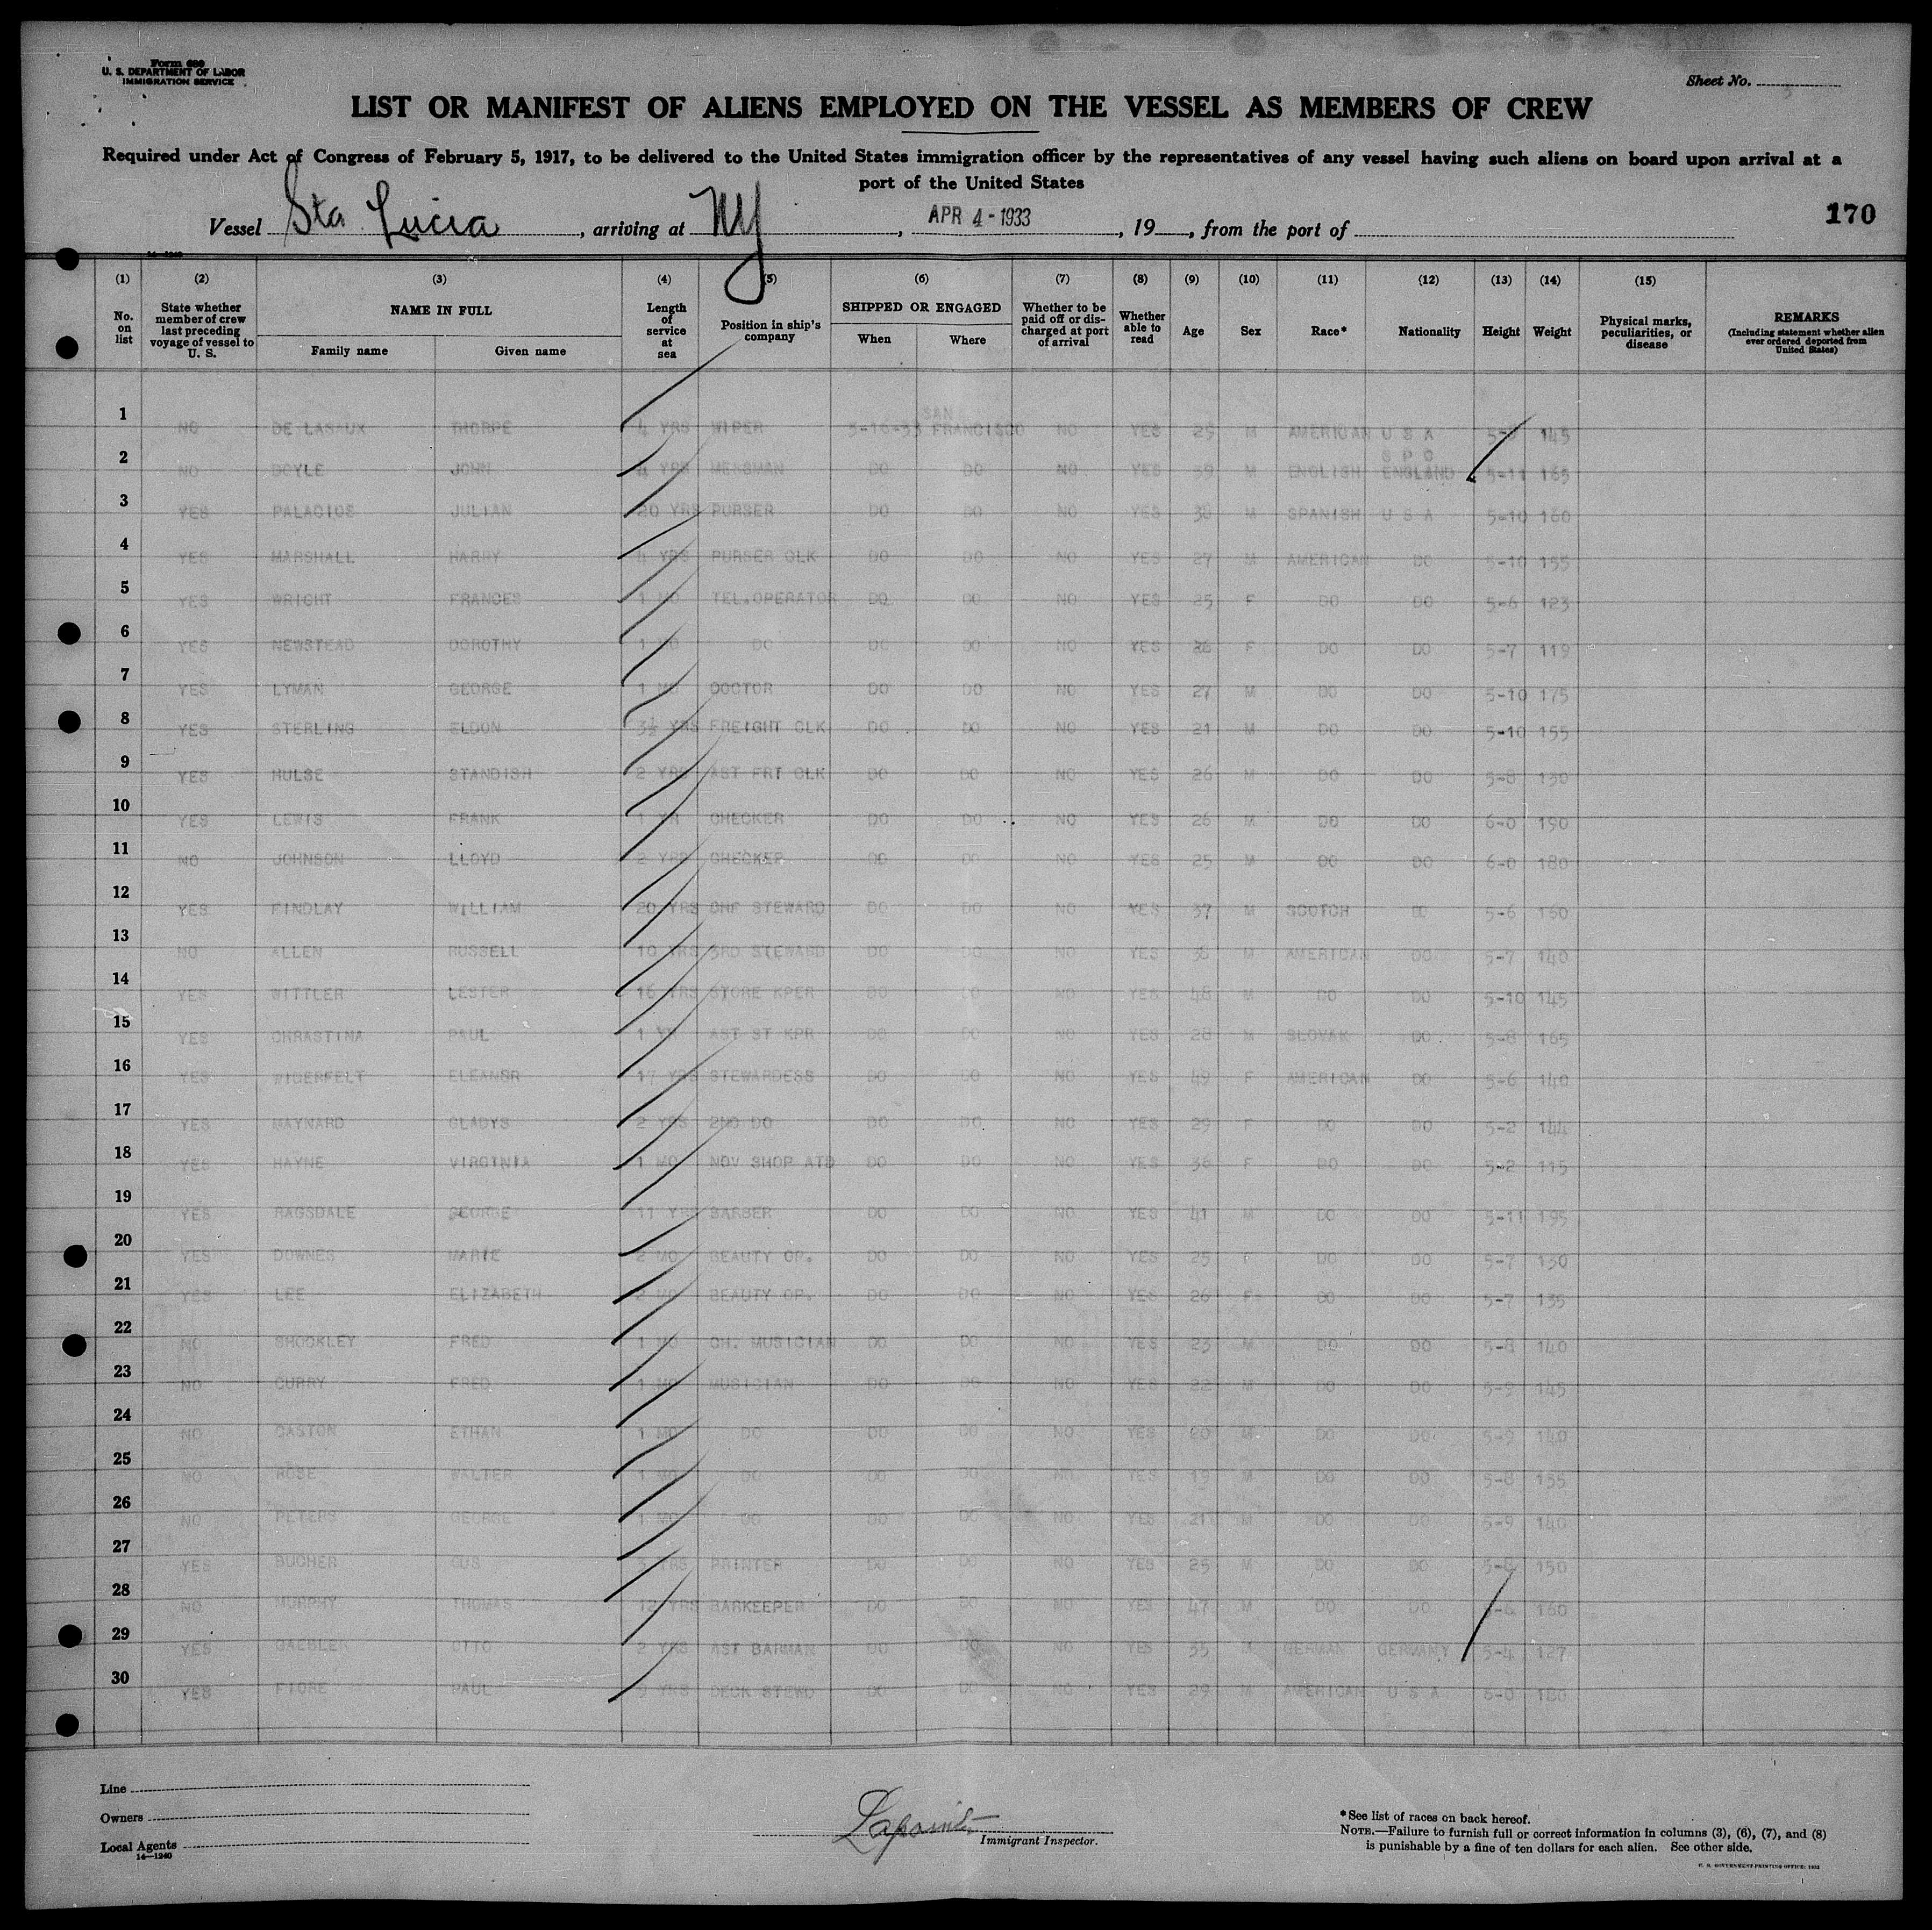 Form 689
U. S. DEPARTMENT OF LABOR
IMMIGRATION SERVICE
Sheet No.
LIST OR MANIFEST OF ALIENS EMPLOYED ON THE VESSEL AS MEMBERS OF CREW
Required under Act of Congress of February 5, 1917, to be delivered to the United States immigration officer by the representatives of any vessel having such aliens on board upon arrival at a
port of the United States
Vessel Sta Lucia, arriving at NY, APR 4-1933, 19__, from the port of
170
14—1240
(1) (2) (3) (4) (5) (6) (7) (8) (9) (10) (11) (12) (13) (14) (15)
No. on list | State whether member of crew last preceding voyage of vessel to U. S. | NAME IN FULL | Family name | Given name | Length of service at sea | Position in ship's company | SHIPPED OR ENGAGED | When | Where | Whether to be paid off or discharged at port of arrival | Whether able to read | Age | Sex | Race* | Nationality | Height | Weight | Physical marks, peculiarities, or disease | REMARKS (Including statement whether alien ever ordered deported from United States)
1 NO DE LASAUX THORPE 4 YRS WIPER 3-16-33 SAN FRANCISCO NO YES 29 M AMERICAN U S A 145
2 NO DOYLE JOHN 4 YRS MESSMAN DO DO NO YES 39 M ENGLISH ENGLAND 5-11 165
3 YES PALACIOS JULIAN 20 YRS PURSER DO DO NO YES 38 M SPANISH U S A 5-10 160
4 YES MARSHALL HARRY 4 YRS PURSER CLK DO DO NO YES 27 M AMERICAN DO 5-10 155
5 YES WRIGHT FRANCES 1 MO TEL.OPERATOR DO DO NO YES 25 F DO DO 5-6 123
6 YES NEWSTEAD DOROTHY 1 MO DO DO DO NO YES 26 F DO DO 5-7 119
7 YES LYMAN GEORGE 1 MO DOCTOR DO DO NO YES 27 M DO DO 5-10 175
8 YES STERLING ELDON 3½ YRS FREIGHT CLK DO DO NO YES 21 M DO DO 5-10 155
9 YES HULSE STANDISH 2 YRS AST FRT CLK DO DO NO YES 26 M DO DO 5-8 130
10 YES LEWIS FRANK 1 YR CHECKER DO DO NO YES 26 M DO DO 6-0 190
11 NO JOHNSON LLOYD 2 YRS CHECKER DO DO NO YES 25 M DO DO 6-0 180
12 YES FINDLAY WILLIAM 20 YRS CHF STEWARD DO DO NO YES 37 M SCOTCH DO 5-6 160
13 NO ALLEN RUSSELL 10 YRS 3RD STEWARD DO DO NO YES 36 M AMERICAN DO 5-7 140
14 YES WITTLER LESTER 16 YRS STORE KPER DO DO NO YES 48 M DO DO 5-10 145
15 YES CHRASTINA PAUL 1 YR AST ST KPR DO DO NO YES 28 M SLOVAK DO 5-8 165
16 YES WIGERFELT ELEANOR 17 YRS STEWARDESS DO DO NO YES 49 F AMERICAN DO 5-6 140
17 YES MAYNARD GLADYS 2 YRS 2ND DO DO DO NO YES 29 F DO DO 5-2 144
18 YES HAYNE VIRGINIA 1 MO NOV SHOP ATD DO DO NO YES 36 F DO DO 5-2 115
19 YES RAGSDALE GEORGE 11 YRS BARBER DO DO NO YES 41 M DO DO 5-11 195
20 YES DOWNES MARIE 2 MO BEAUTY OP. DO DO NO YES 25 F DO DO 5-7 130
21 YES LEE ELIZABETH 2 MO BEAUTY OP. DO DO NO YES 26 F DO DO 5-7 135
22 NO SHOCKLEY FRED 1 MO CH. MUSICIAN DO DO NO YES 23 M DO DO 5-8 140
23 NO CURRY FRED 1 MO MUSICIAN DO DO NO YES 22 M DO DO 5-9 145
24 NO CASTON ETHAN 1 MO DO DO DO NO YES 20 M DO DO 5-9 140
25 NO ROSE WALTER 1 MO DO DO DO NO YES 19 M DO DO 5-8 155
26 NO PETERS GEORGE 1 MO DO DO DO NO YES 21 M DO DO 5-9 140
27 YES BUCHER GUS YRS PRINTER DO DO NO YES 25 M DO DO 150
28 NO MURPHY THOMAS 12 YRS BARKEEPER DO DO NO YES 47 M DO DO 160
29 YES GAEBLER OTTO 2 YRS AST BARMAN DO DO NO YES 35 M GERMAN GERMANY 5-4 127
30 YES FIORE PAUL YRS DECK STEWD DO DO NO YES 29 M AMERICAN U S A 180
Line
Owners
Local Agents
14—1240
Immigrant Inspector.
*See list of races on back hereof.
NOTE.—Failure to furnish full or correct information in columns (3), (6), (7), and (8)
is punishable by a fine of ten dollars for each alien. See other side.